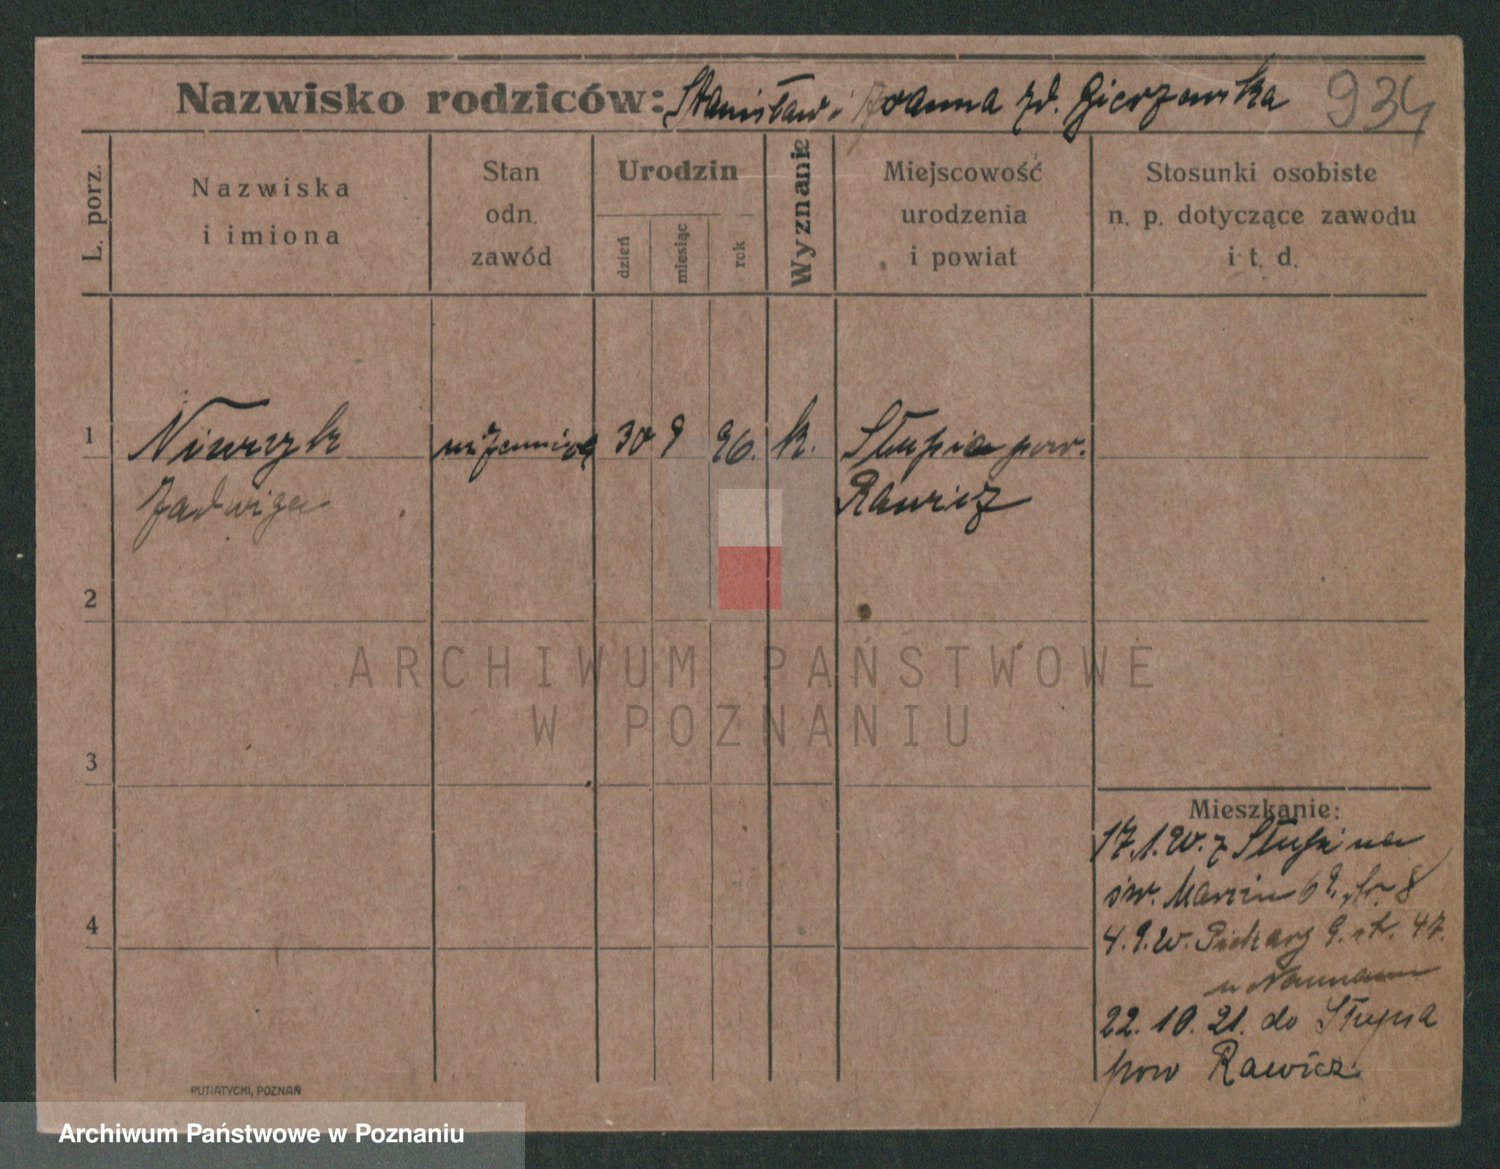 Nazwisko rodziców: Stanisław i Joanna zd. Gierzewska 934
L. porz.
Nazwiska
i imiona
Stan
odn.
zawód
Urodzin
dzień
miesiąc
rok
Wyznanie
Miejscowość
urodzenia
i powiat
Stosunki osobiste
n. p. dotyczące zawodu
i t. d.
1 Niwczyk 30 9 96. k. Słupia pow.
Jadwiga Rawicz
2
ARCHIWUM PAŃSTWOWE
W POZNANIU
3
Mieszkanie:
17.1.20. z Słupi na
św. Marcin 8
4
4.9.20. Piekary 9.
22.10.21. do Słupia
pow Rawicz.
PUTIATYCKI, POZNAŃ
Archiwum Państwowe w Poznaniu